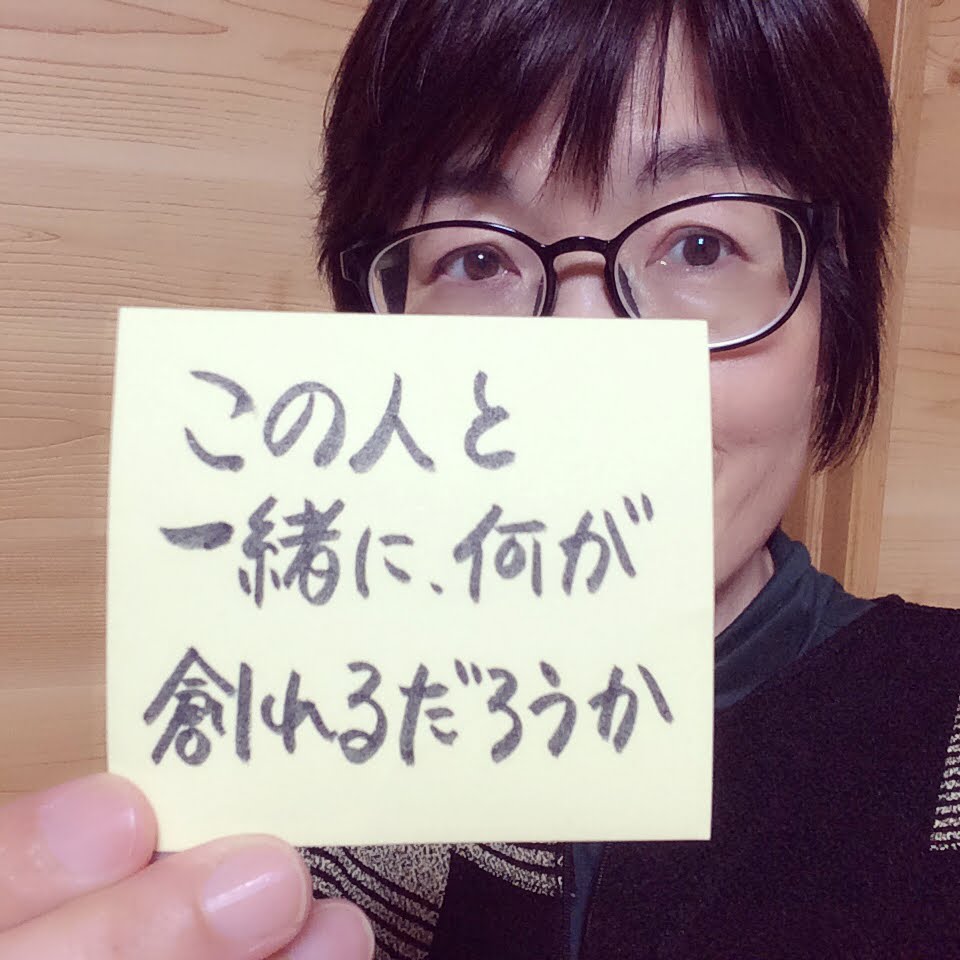 この人と
一緒に、何が
創れるだろうか